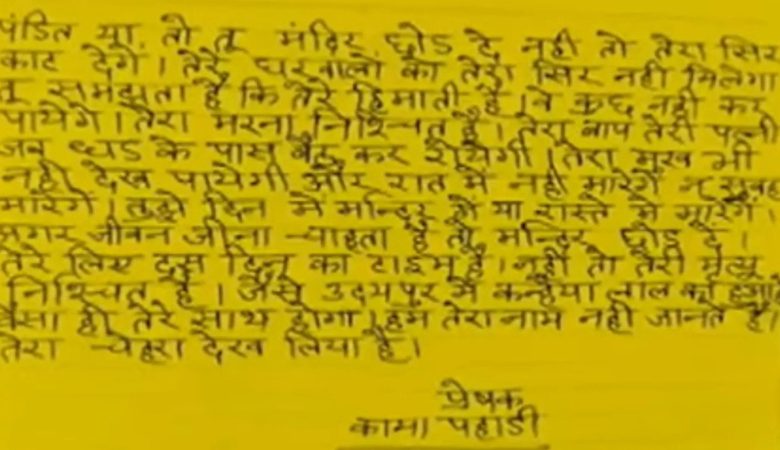 पंडित या तो तू मंदिर छोड दे नही तो तेरा सिर
काट देगें। तेरे घरवालो को तेरा सिर नही मिलेगा
तू समझता है कि तेरे हिमाती है। वे कुछ नही कर
पायेगें। तेरा मरना निश्चित है। तेरा बाप तेरी पत्नी
जब धड के पास बैठ कर रोयेगी। तेरा मुख भी
नही देख पायेगी और रात मे नही मारेगें न सुबह
मारेगें। तुझे दिन मे मन्दिर मे या रास्ते मे मारेगें।
अगर जीवन जीना चाहता है तो मन्दिर छोड दे।
तेरे लिए दस दिन का टाईम है। नही तो तेरी मृत्यु
निश्चित है। जैसे उदयपुर मे कन्हैया लाल का हुआ
वैसा ही तेरे साथ होगा। हम तेरा नाम नही जानते है।
तेरा चेहरा देख लिया है।
प्रेषक
कामा पहाडी